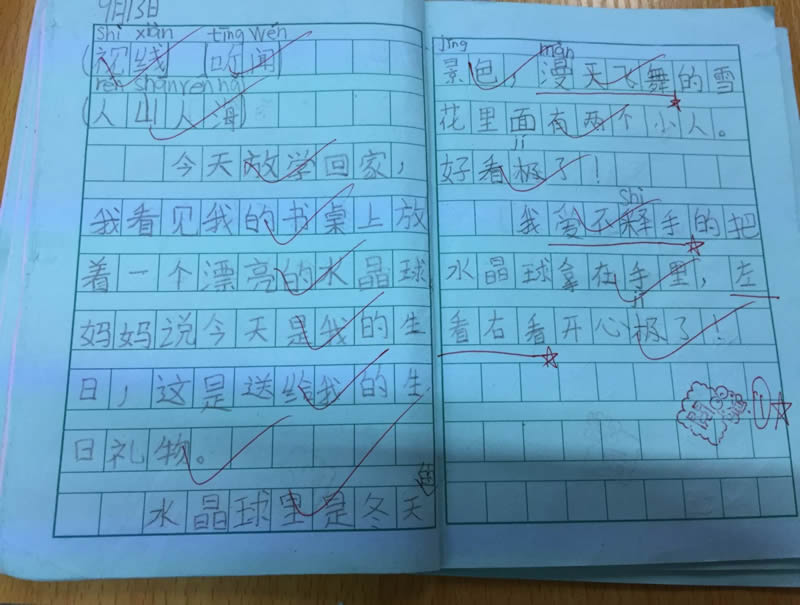 9月13日
shì xiàn tīng wén
(视线 听闻)
rén shān rén hǎi
人山人海)
今天放学回家，
我看见我的书桌上放
着一个漂亮的水晶球，
妈妈说今天是我的生
日，这是送给我的生
日礼物。
水晶球里是冬天
jǐng màn
景色，漫天飞舞的雪
花里面有两个小人。
jí
好看极了！
shì
我爱不释手的把
水晶球拿在手里，左
jí
看右看开心极了！